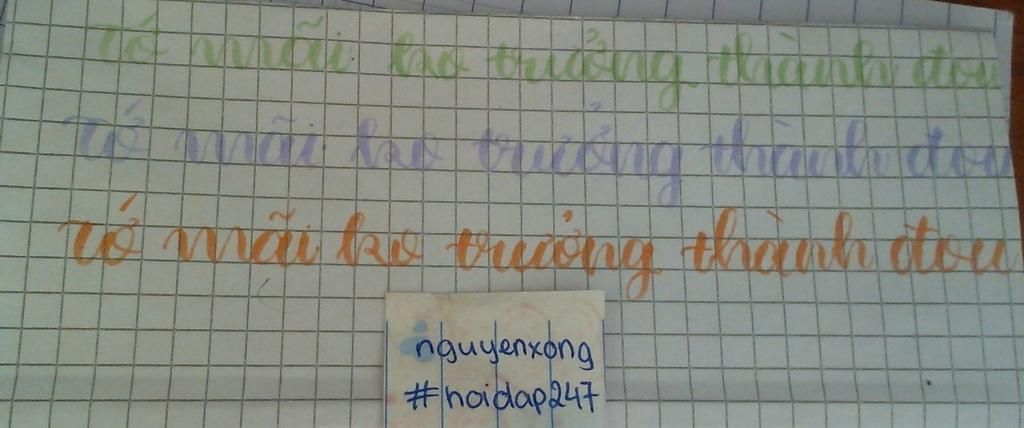 tớ mãi ko trưởng thành đou
tớ mãi ko trưởng thành đou
tớ mãi ko trưởng thành đou
nguyenxong
#hoidap247